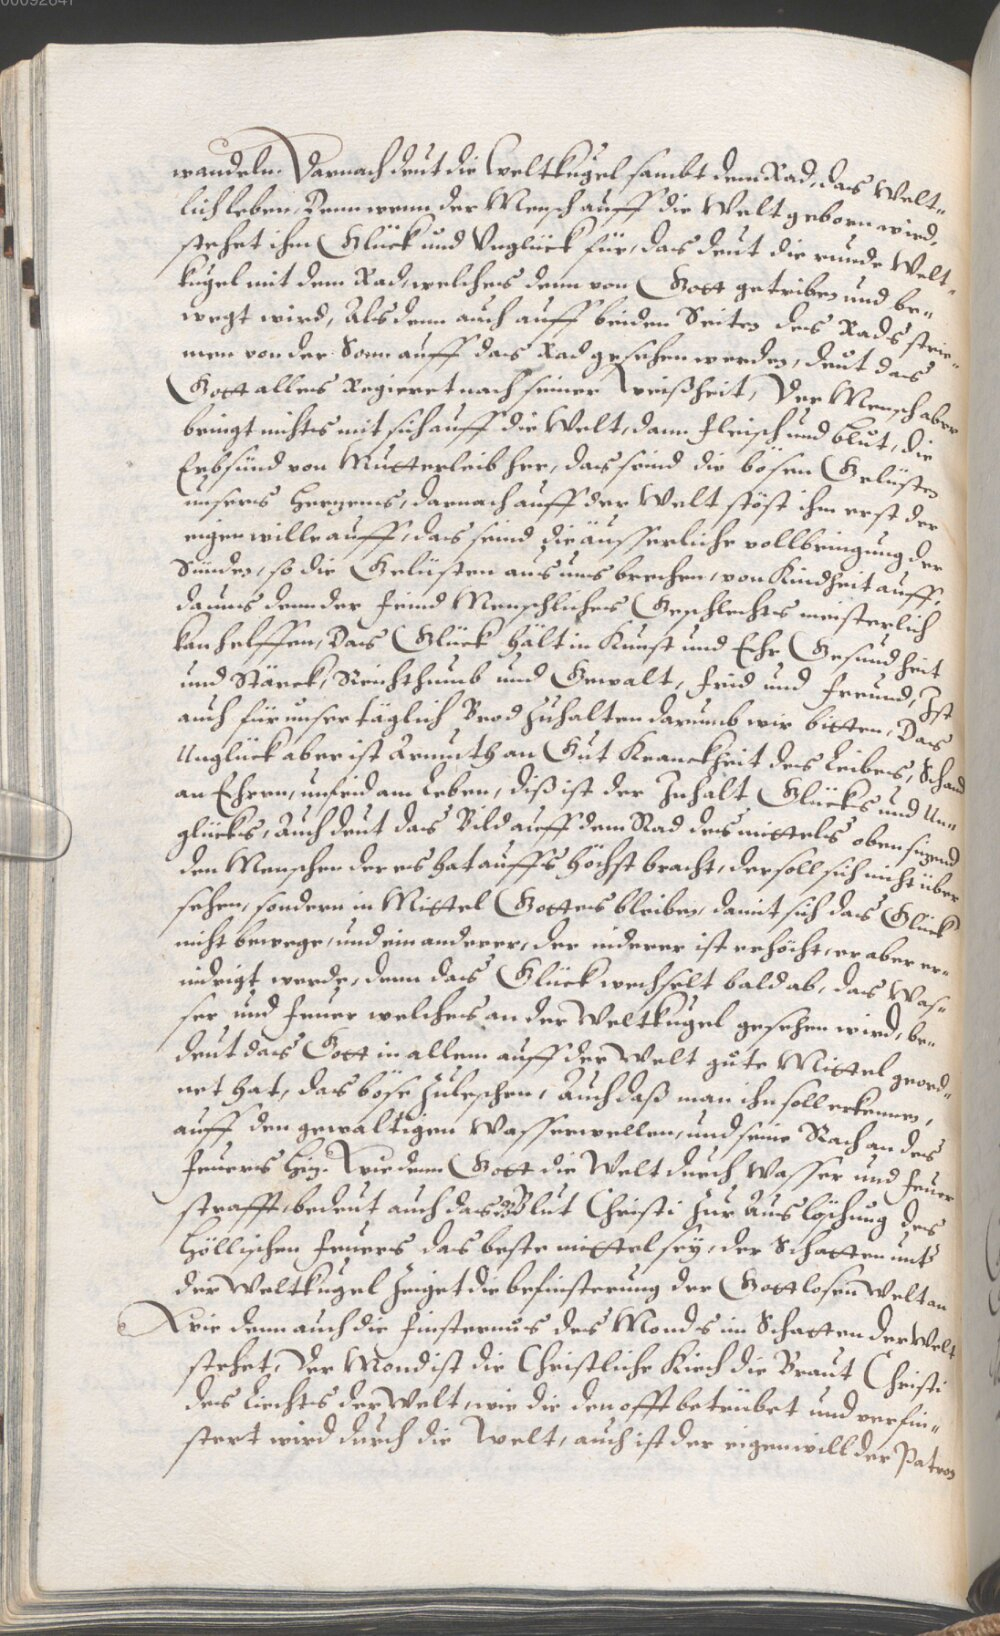 00092847
wandeln. Darnach deut die Weltkugel sambt dem Rad, das Welt-
lich leben, Denn wenn der Mensch auff die Welt geborn wird,
stehet ihm Glück und Vnglück für, das deut die runde Welt-
kugel mit dem Rad, welches denn von Gott getriben und be-
wegt wird, Als denn auch auff beiden Seiten des Rads strie-
men von der Sonn auff das Rad gesehen werden, deut das
Gott alles Regieret nach seiner Weißheit, Der Mensch aber
bringt nichts mit sich auff die Welt, dann fleisch und blut, die
Erbsünd von Mutterleib her, das seind die bösen Gelüsten
unsers Herzens, darnach auff der Welt stöst ihm erst der
eigen wille auff, das seind die äusserliche vollbringung der
Sünden, so die Gelüsten aus uns brechen, von Kindheit auff,
da uns denn der feind Menschliches Geschlechts meisterlich
kan helffen, Das Glück hält in Kunst und Ehr Gesundheit
und Stärck, Reichthumb und Gewalt, frid und freund, Ist
auch für unser täglich Brod zuhalten darumb wir bitten, Das
Unglück aber ist Armuth an Gut Kranckheit des Leibes, Schand
an Ehren, unfrid am Leben, diß ist der Inhalt Glücks und Un-
glücks, Auch deut das Bild auff dem Rad des mittels oben sizend
den Menschen der es hat auffs höchst bracht, der soll sich nicht über
sehen, sondern in Mittel Gottes bleiben, damit sich das Glück
nicht bewege, und ein anderer, der niderer ist erhöcht, er aber er-
nidrigt werde, denn das Glück wechselt bald ab, das Was-
ser und feuer welches an der Weltkugel gesehen wird, be-
deut das Gott in allem auff der Welt gute Mittel geord-
net hat, das böse zuleschen, Auch daß man ihn soll erkennen,
auff den gewaltigen Wasserwellen, und seine Rach an des
feuers Hiz. Wie denn Gott die Welt durch Wasser und feuer
strafft, bedeut auch das Blut Christi zur Auslöschung des
Höllischen feuers das beste mittel sey, der Schatten unts
der Weltkugel zeiget die befinsterung der Gottlosen Welt an
Wie denn auch die finsternus des Monds im Schatten der Welt
stehet, Der Mond ist die Christliche Kirch die Braut Christi
des Liechts der Welt, wie die den offt betrübet und verfin-
stert wird durch die Welt, auch ist der eigenwill der Patron